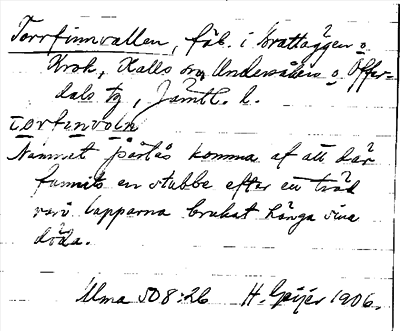 Torrfinnvallen, fäb. i Brattäggen o
Krok, Kalls sn, Undersåkers o Offer-
dals tg, Jämtl. l.
Namnet påstås komma af att där
funnits en stubbe efter en träd
vari lapparna brukat hänga sina
döda.
Ulma 508:26 H. Geijer 1906.